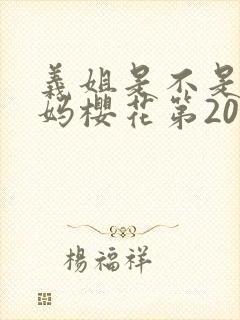 義姐是不是
妈樱花第20
楊福祥